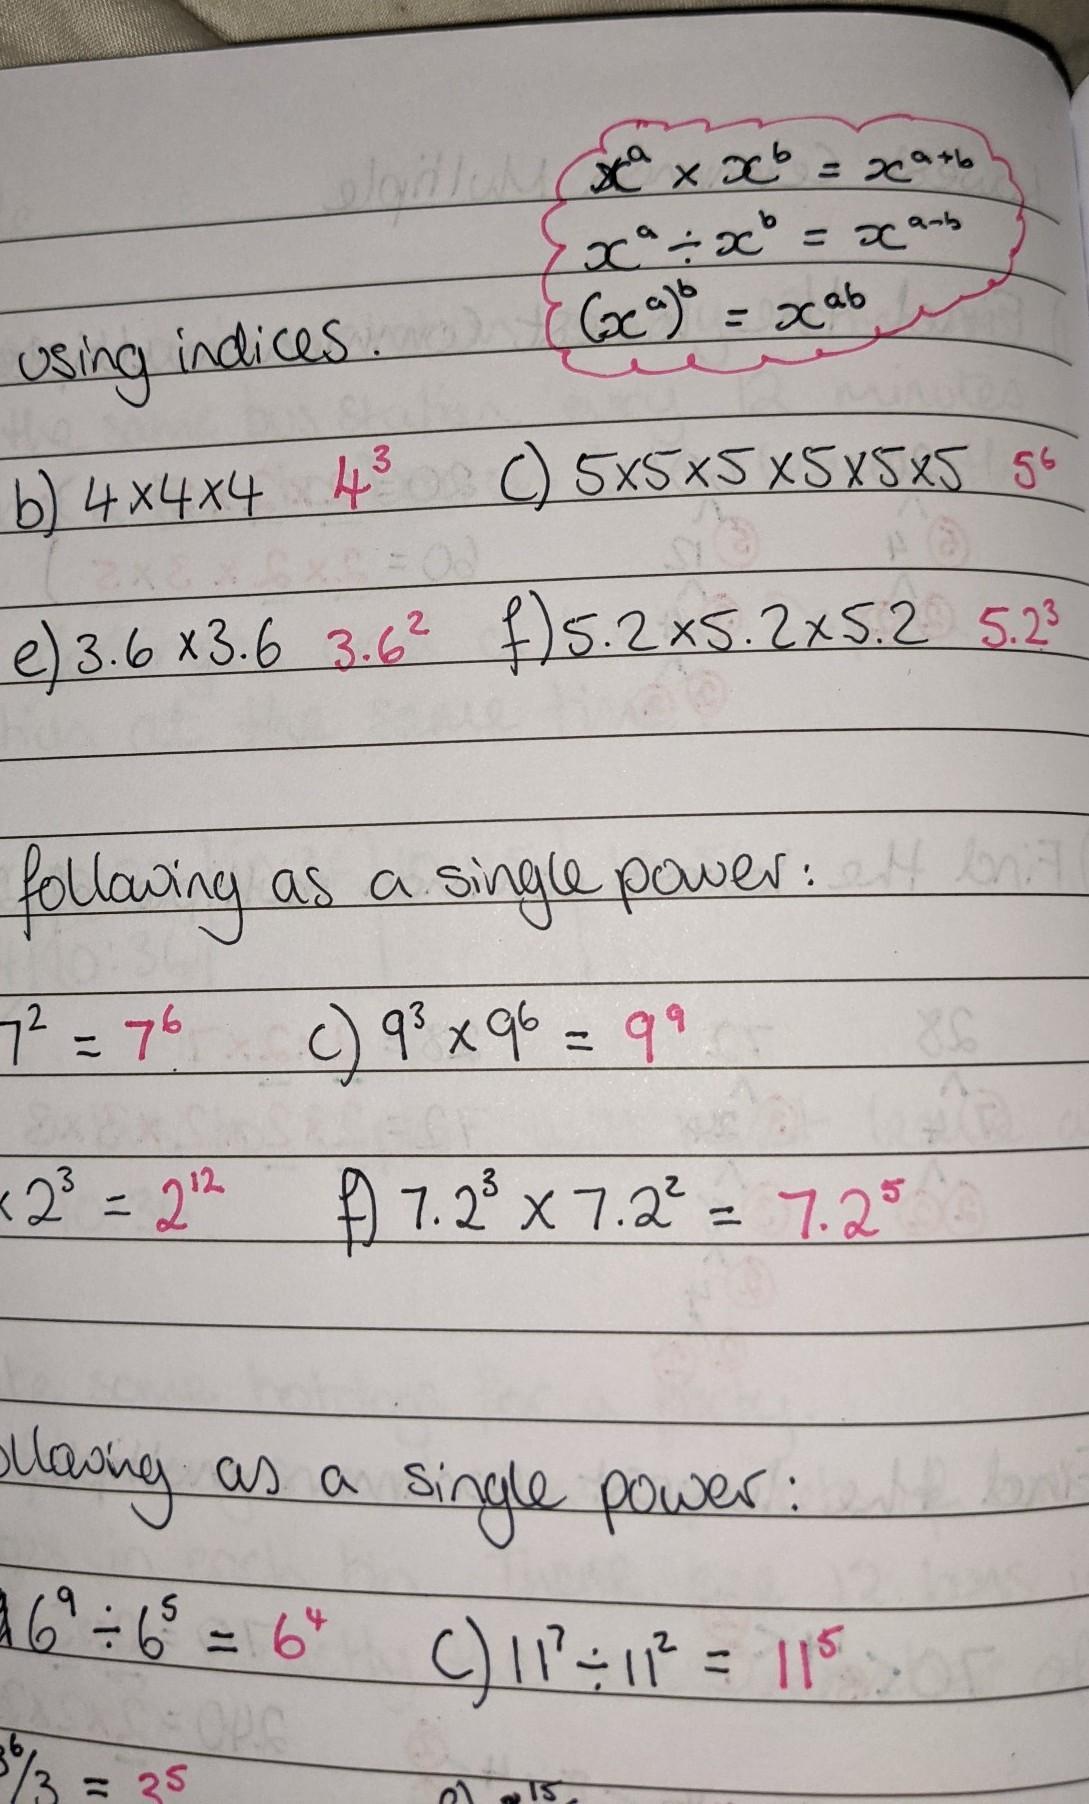 xᵃ × xᵇ = xᵃ⁺ᵇ
xᵃ ÷ xᵇ = xᵃ⁻ᵇ
(xᵃ)ᵇ = xᵃᵇ
using indices.
b) 4×4×4 4³ C) 5×5×5×5×5×5 5⁶
e) 3.6 × 3.6 3.6² f) 5.2×5.2×5.2 5.2³
following as a single power:
7² = 7⁶ C) 9³ × 9⁶ = 9⁹
× 2³ = 2¹² f) 7.2³ × 7.2² = 7.2⁵
ollowing as a single power:
6⁹ ÷ 6⁵ = 6⁴ C) 11⁷ ÷ 11² = 11⁵
3⁶/3 = 3⁵